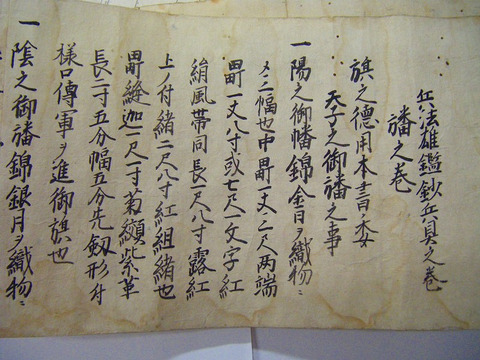 兵法雄鑑鈔兵具之巻
旙之巻
旗之德用本書委
天子之御旙之事
一陽之御幡錦金日ヲ織物ニ
〆三幅也中町一丈二尺両端
町一丈八寸或七尺一文字紅
絹風帯同長一尺八寸露紅
上ノ付緒二尺八寸紅ノ組緒也
町縫迦一尺一寸菊纈紫革
長二寸五分幅五分先釼形付
様口傳軍ヲ進御旗也
一陰之御旙錦銀月ヲ織物ニ